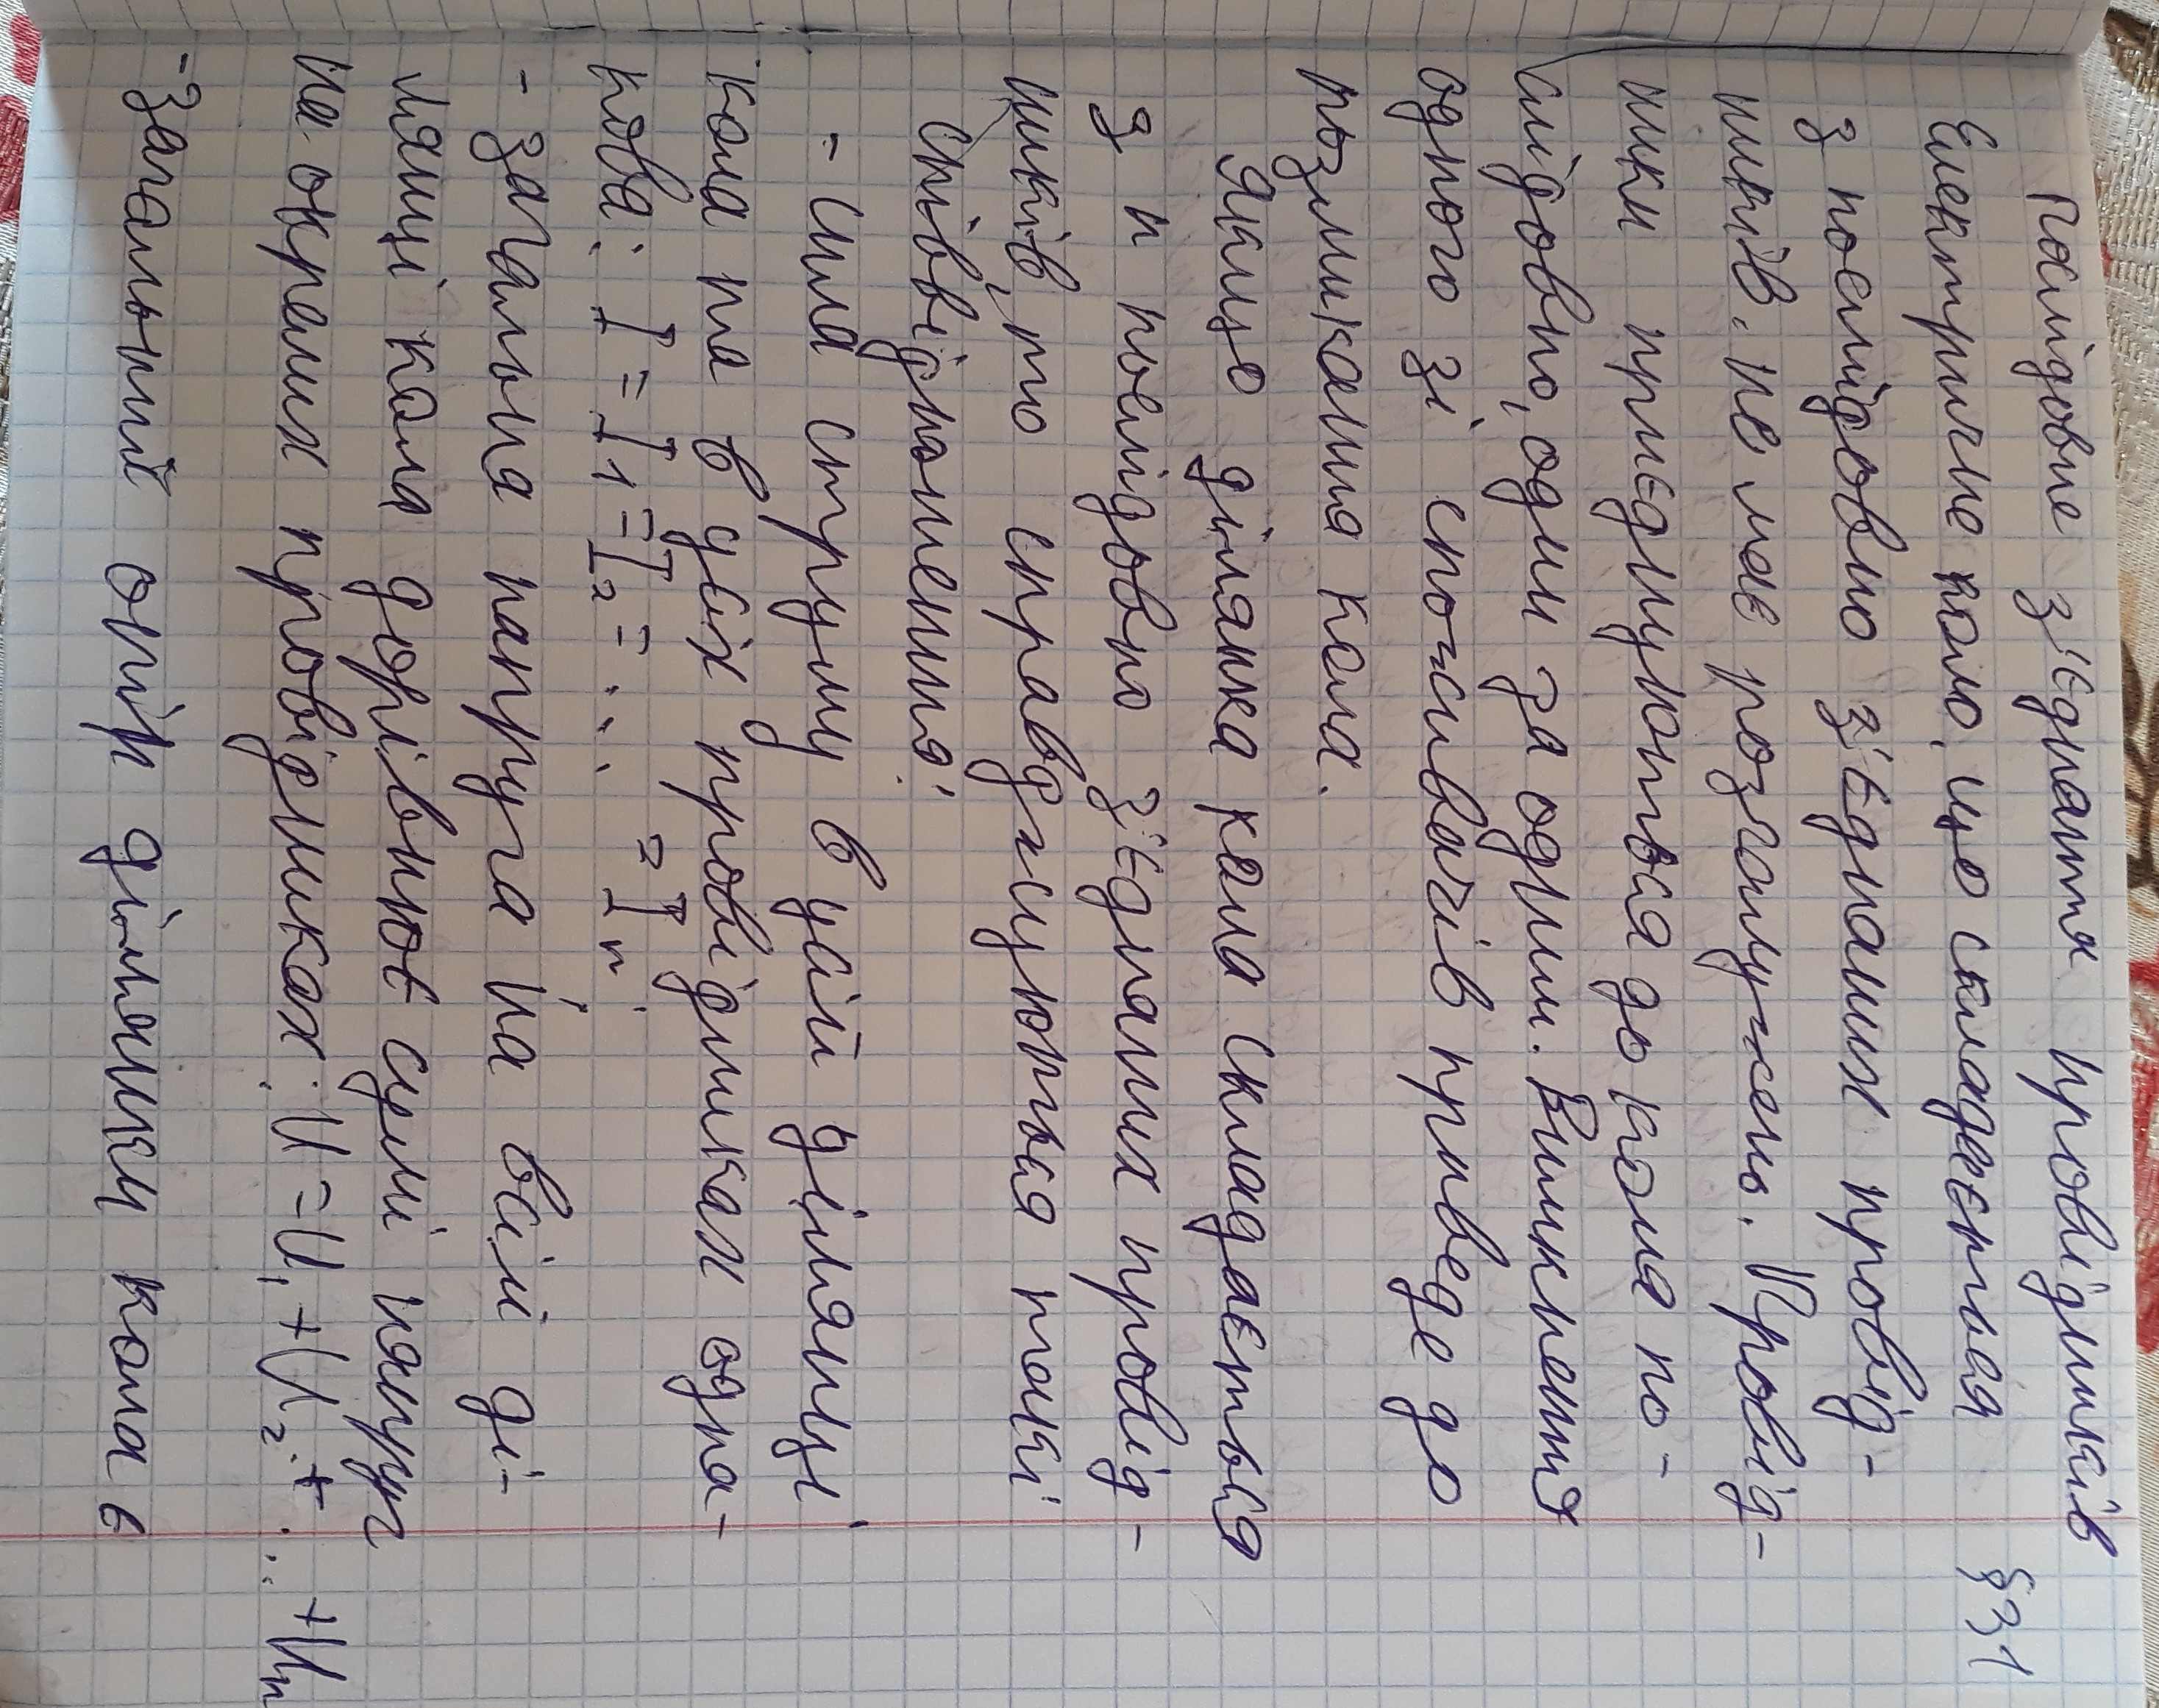 Послідовне з'єднання провідників
§31
Електричне коло, що складається
з послідовно з'єднаних провід-
ників, не має розгалужень. Провід-
ники приєднуються до кола по-
слідовно, один за одним. Вимкнення
одного зі споживачів приведе до
розмикання кола.
Якщо ділянка кола складається
з n послідовно з'єднаних провід-
ників, то справджуються такі
співвідношення:
- сила струму в усій ділянці
кола та в усіх провідниках одна-
кова: I = I1 = I2 = ... = In;
- загальна напруга на всій ді-
лянці кола дорівнює сумі напруг
на окремих провідниках: U = U1 + U2 + ... + Un
- Загальний опір ділянки кола є